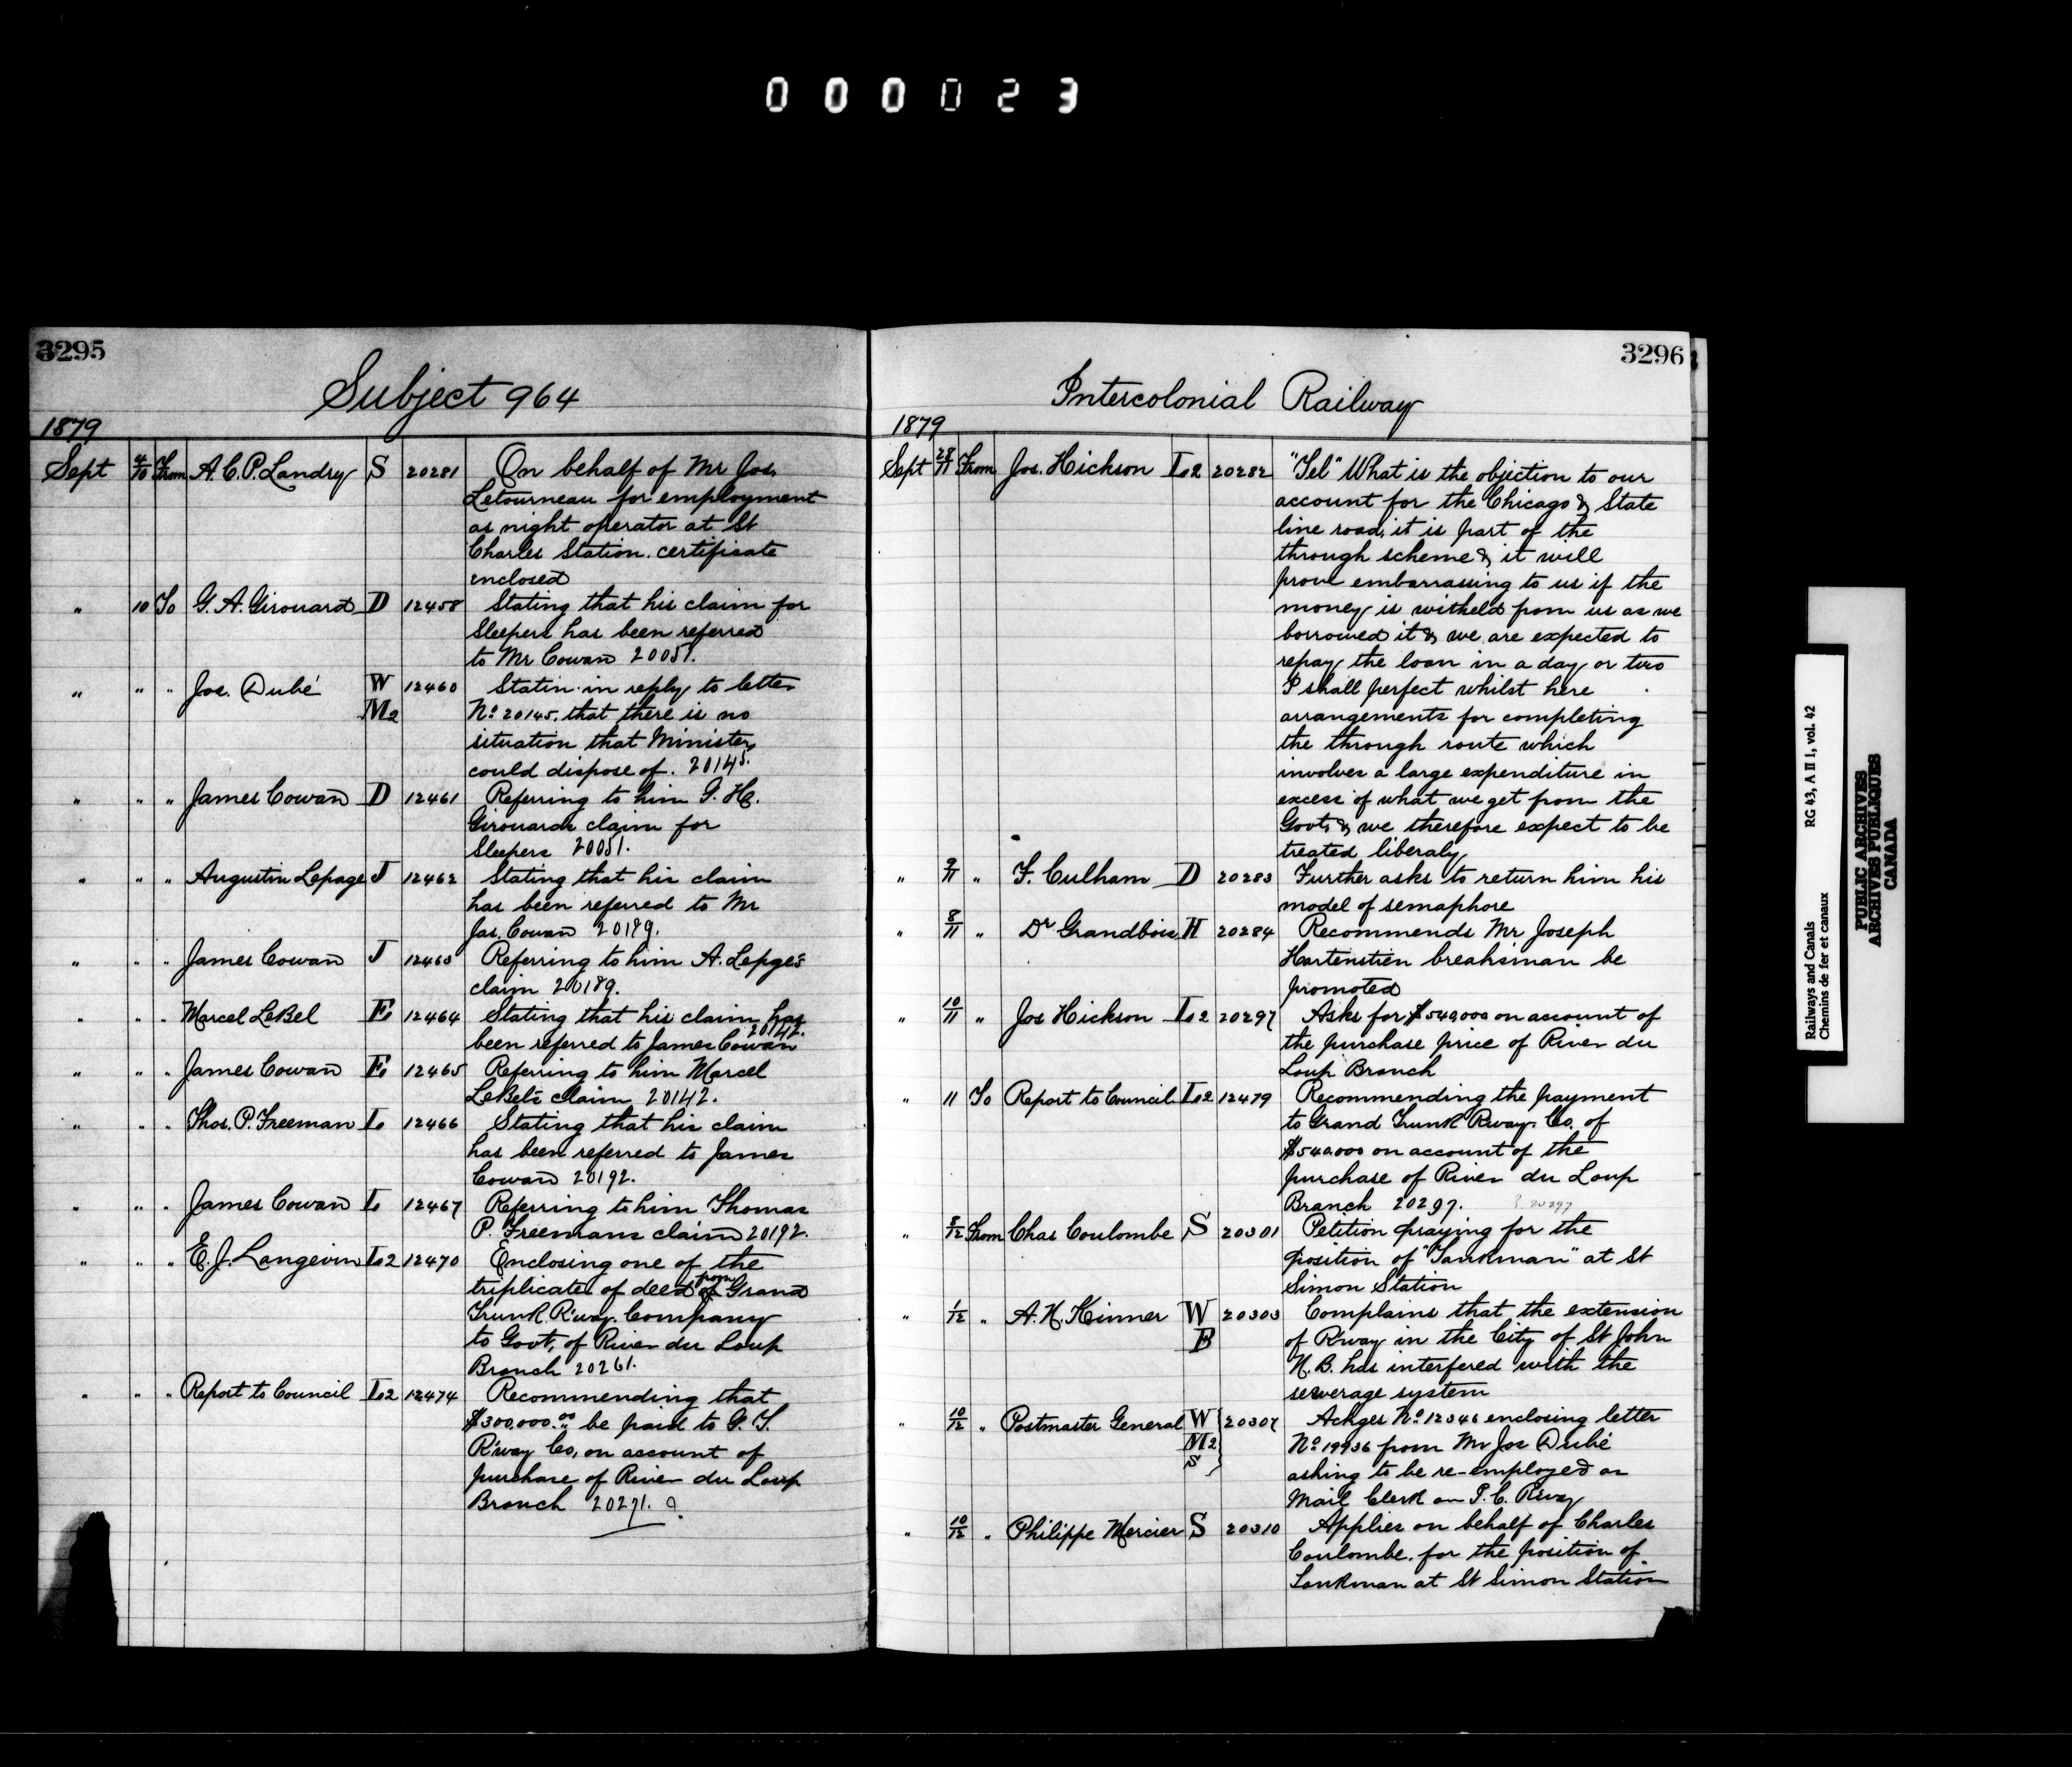 000023
3295
Subject 964
1879
Sept 4/10 From A. C. P. Landry S 20281 On behalf of Mr Jos.
Letourneau for employment
as night operator at St
Charles Station. certificate
enclosed
" 10 To G. A. Girouard D 12458 Stating that his claim for
Sleepers has been referred
to Mr Cowan 20051.
" " " Jos. Dubé W 12460 Statin in reply to letter
M2 No. 20145, that there is no
situation that Minister
could dispose of. 20145.
" " " James Cowan D 12461 Referring to him G. H.
Girouards claim for
Sleepers 20051.
" " " Augustin Lepage J 12462 Stating that his claim
has been referred to Mr
Jas. Cowan 20189.
" " " James Cowan J 12463 Referring to him A. Lepge's
claim 20189.
" " " Marcel LeBel E. 12464 Stating that his claim has
been referred to James Cowan 20142.
" " " James Cowan E. 12465 Referring to him Marcel
LeBel's claim 20142.
" " " Thos. P. Freeman L. 12466 Stating that his claim
has been referred to James
Cowan 20192.
" " " James Cowan L. 12467 Referring to him Thomas
P. Freemans claim 20192.
" " " E. J. Langevin L.2 12470 Enclosing one of the
triplicates of deed from Grand
Trunk R'way. Company
to Govt, of River du Loup
Branch 20261.
" " " Report to Council L.2 12474 Recommending that
$300,000.00 be paid to G. T.
R'way Co, on account of
purchase of River du Loup
Branch 20271.
3296
Intercolonial Railway
1879
Sept 28/11 From Jos. Hickson L.2 20282 "Tel" What is the objection to our
account for the Chicago & State
line road, it is part of the
through scheme & it will
prove embarrassing to us if the
money is witheld from us as we
borrowed it & we are expected to
repay the loan in a day or two
I shall perfect whilst here
arrangements for completing
the through route which
involves a large expenditure in
excess of what we get from the
Govt, & we therefore expect to be
treated liberaly
" 9/11 " F. Culham D 20283 Further asks to return him his
model of semaphore
" 8/11 " Dr Grandbois H 20284 Recommends Mr Joseph
Hartenstien breaksman be
promoted
" 10/11 " Jos Hickson L.2 20297 Asks for $540,000 on account of
the purchase price of River du
Loup Branch
" 11 To Report to Council L.2 12479 Recommending the payment
to Grand Trunk Rway. Co. of
$540.000 on account of the
purchase of River du Loup
Branch 20297. 20297
" 8/12 From Chas Coulombe S 20301 Petition praying for the
position of "Tankman" at St
Simon Station
" 1/12 " A. H. Kinner W 20303 Complains that the extension
B of R'way in the City of St John
N. B. has interfered with the
sewerage system
" 10/12 " Postmaster General W 20307 Ackges No. 12346 enclosing letter
M2 No. 19936 from Mr Jos Dubé
S asking to be re-employed as
Mail Clerk on I. C. Rway
" 10/12 " Philippe Mercier S 20310 Applies on behalf of Charles
Coulombe, for the position of
Tankman at St Simon Station
Railways and Canals RG 43, A II 1, vol. 42
Chemins de fer et canaux
PUBLIC ARCHIVES
ARCHIVES PUBLIQUES
CANADA